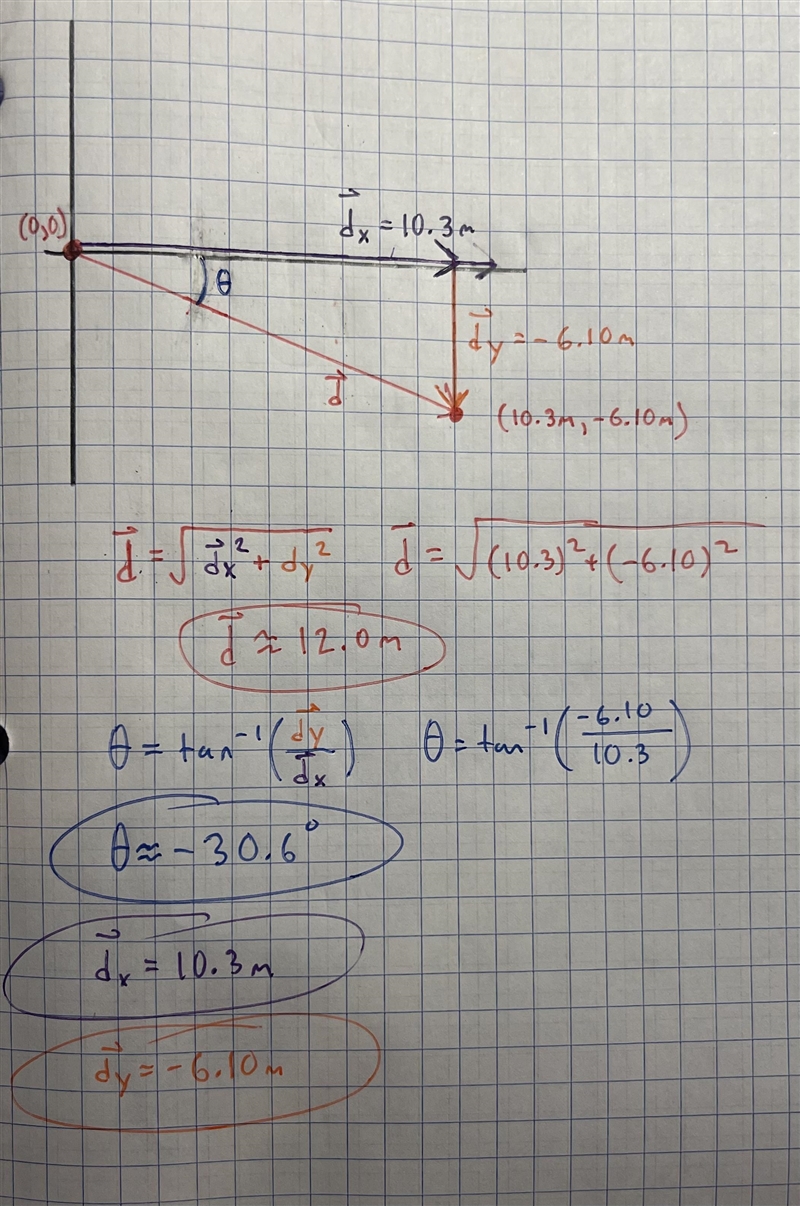 d⃗x = 10.3m
(0,0)
θ
d⃗y = -6.10m
d⃗
(10.3m, -6.10m)
d⃗ = √(d⃗x² + dy²)    d⃗ = √((10.3)² + (-6.10)²)
d⃗ ≈ 12.0m
θ = tan⁻¹(d⃗y/d⃗x)    θ = tan⁻¹(-6.10/10.3)
θ ≈ -30.6°
d⃗x = 10.3m
d⃗y = -6.10m